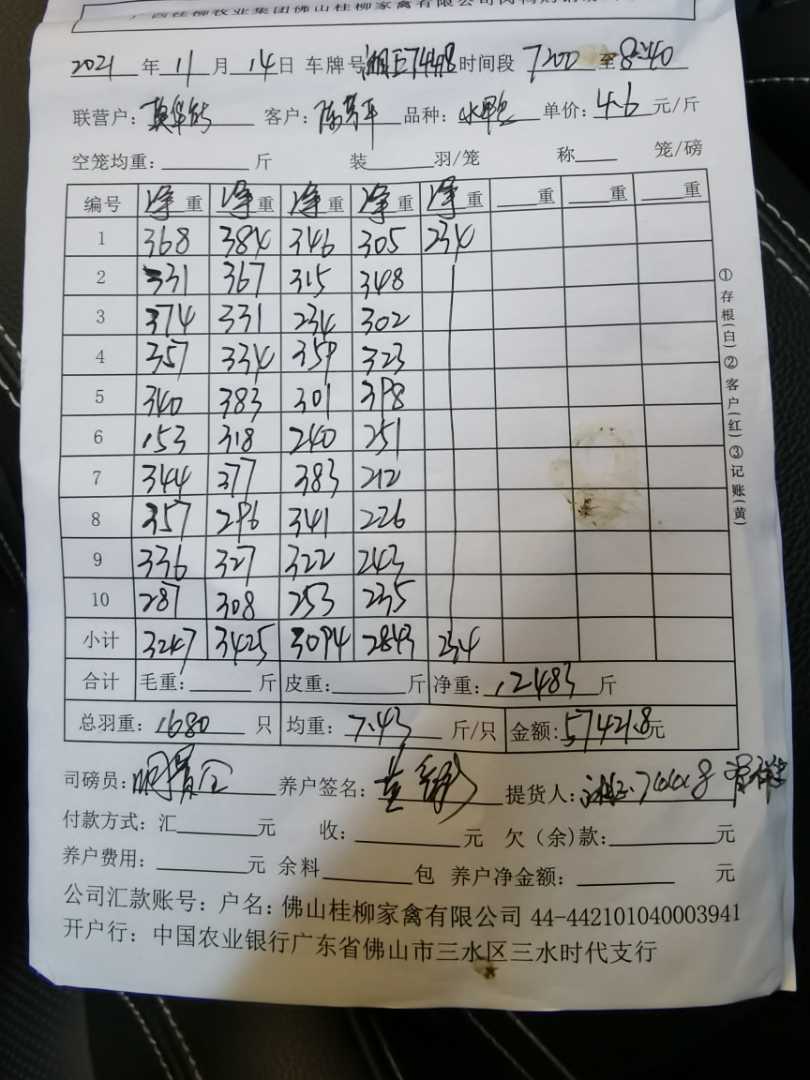 广西桂柳农业集团佛山桂柳家禽有限公司肉鸭购销
2021 年 11 月 14 日 车牌号 湘E74448 时间段 7200 至 8:40
联营户: 客户: 陈芳平 品种: 水鸭 单价: 4.6 元/斤
空笼均重: 斤 装 羽/笼 称 笼/磅
编号 净重 净重 净重 净重 净重 重 重 重
1 368 384 346 305 234
2 331 367 315 348
3 374 331 234 302
4 357 334 359 323
5 340 383 301 398
6 153 318 240 251
7 344 377 383 212
8 357 296 341 226
9 336 327 322 243
10 287 308 253 235
小计 3247 3425 3094 2843 234
合计 毛重: 斤 皮重: 斤 净重: 12483 斤
总羽重: 1680 只 均重: 7.43 斤/只 金额: 57421.8 元
司磅员: 养户签名: 提货人:
付款方式: 汇 元 收: 元 欠(余)款: 元
养户费用: 元 余料 包 养户净金额: 元
公司汇款账号: 户名: 佛山桂柳家禽有限公司 44-442101040003941
开户行: 中国农业银行广东省佛山市三水区三水时代支行
①存根(白)②客户(红)③记账(黄)